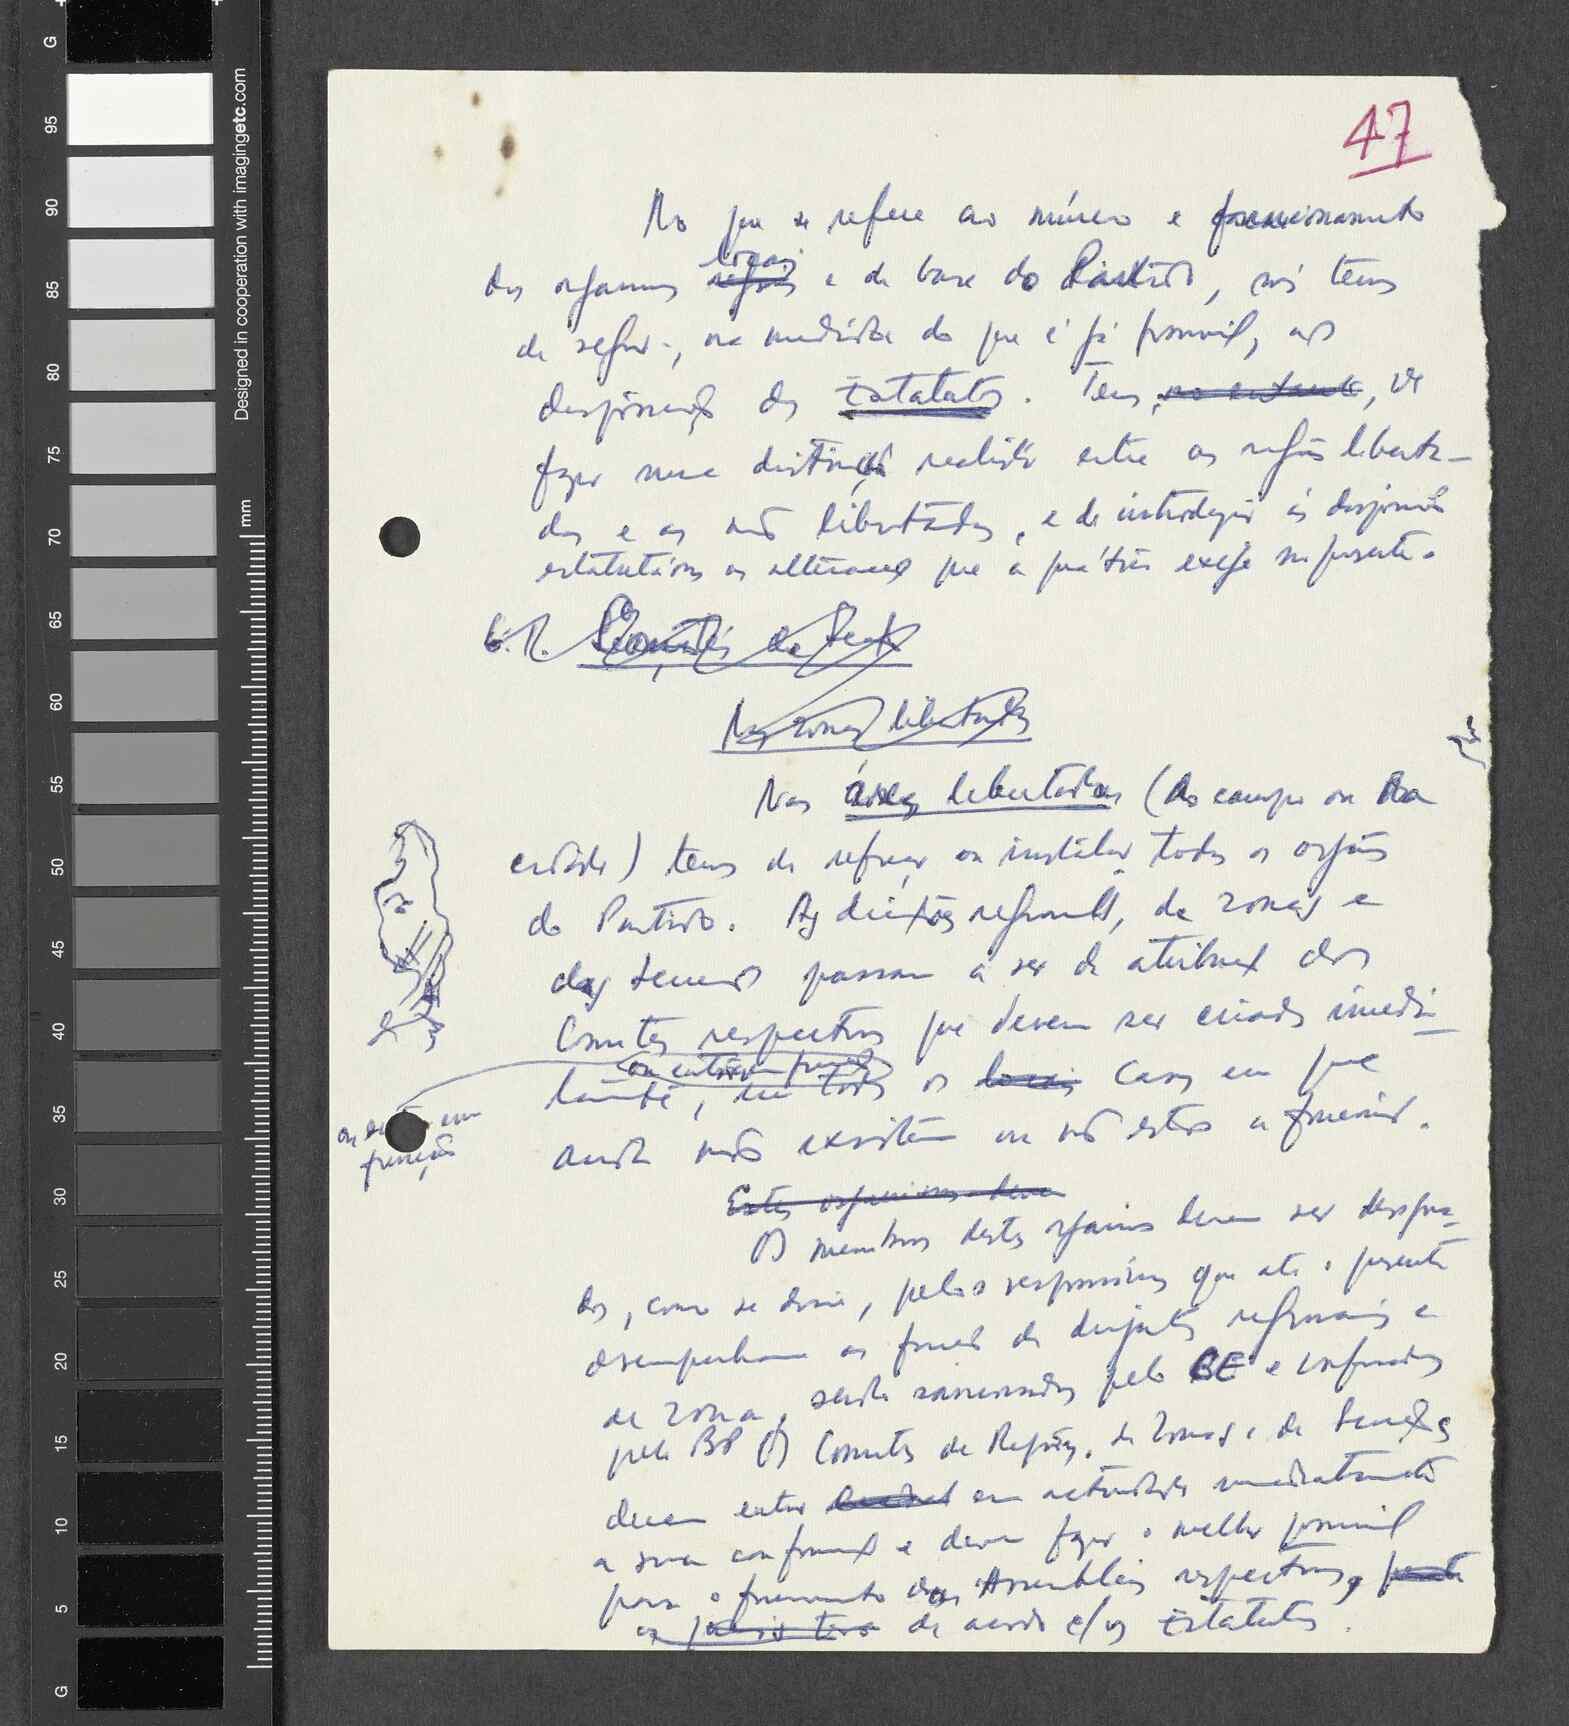 47
No que se refere ao número e funcionamento
dos organismos locais e de base do Partido, nós temos
de seguir, na medida do que é já possível, as
disposições dos Estatutos. Temos, no entanto, de
fazer uma distinção realista entre as regiões liberta-
das e as não libertadas, e de introduzir às disposições
estatutárias as alterações que a prática exige no presente.
Comités de
Nas zonas libertadas
Nas áreas libertadas (do campo ou da
cidade) temos de reforçar ou instalar todos os orgãos
do Partido. As direções regionais, de zonas e
das secções passam a ser de atribuições dos
Comités respectivos que devem ser criados imedia-
tamente, em todos os locais casos em que
ou em
função
ainda não existam ou não estão a funcionar.
Estes organismos devem
Os membros destes organismos devem ser designa-
dos, como se disse, pelos responsáveis que até o presente
desempenham as funções de dirigentes regionais e
de zona, sendo sancionados pelo BE e confirmados
pelo BP. Os Comités de Regiões, de Zonas e de Secções
devem entrar em actividade imediatamente
a sua confirmação e devem fazer o melhor possível
para o funcionamento das Assembleias respectivas,
de acordo c/ os Estatutos.
G
95
90
85
80
75
70
65
60
55
50
45
40
35
30
25
20
15
10
5
G
Designed in cooperation with imagingetc.com
mm